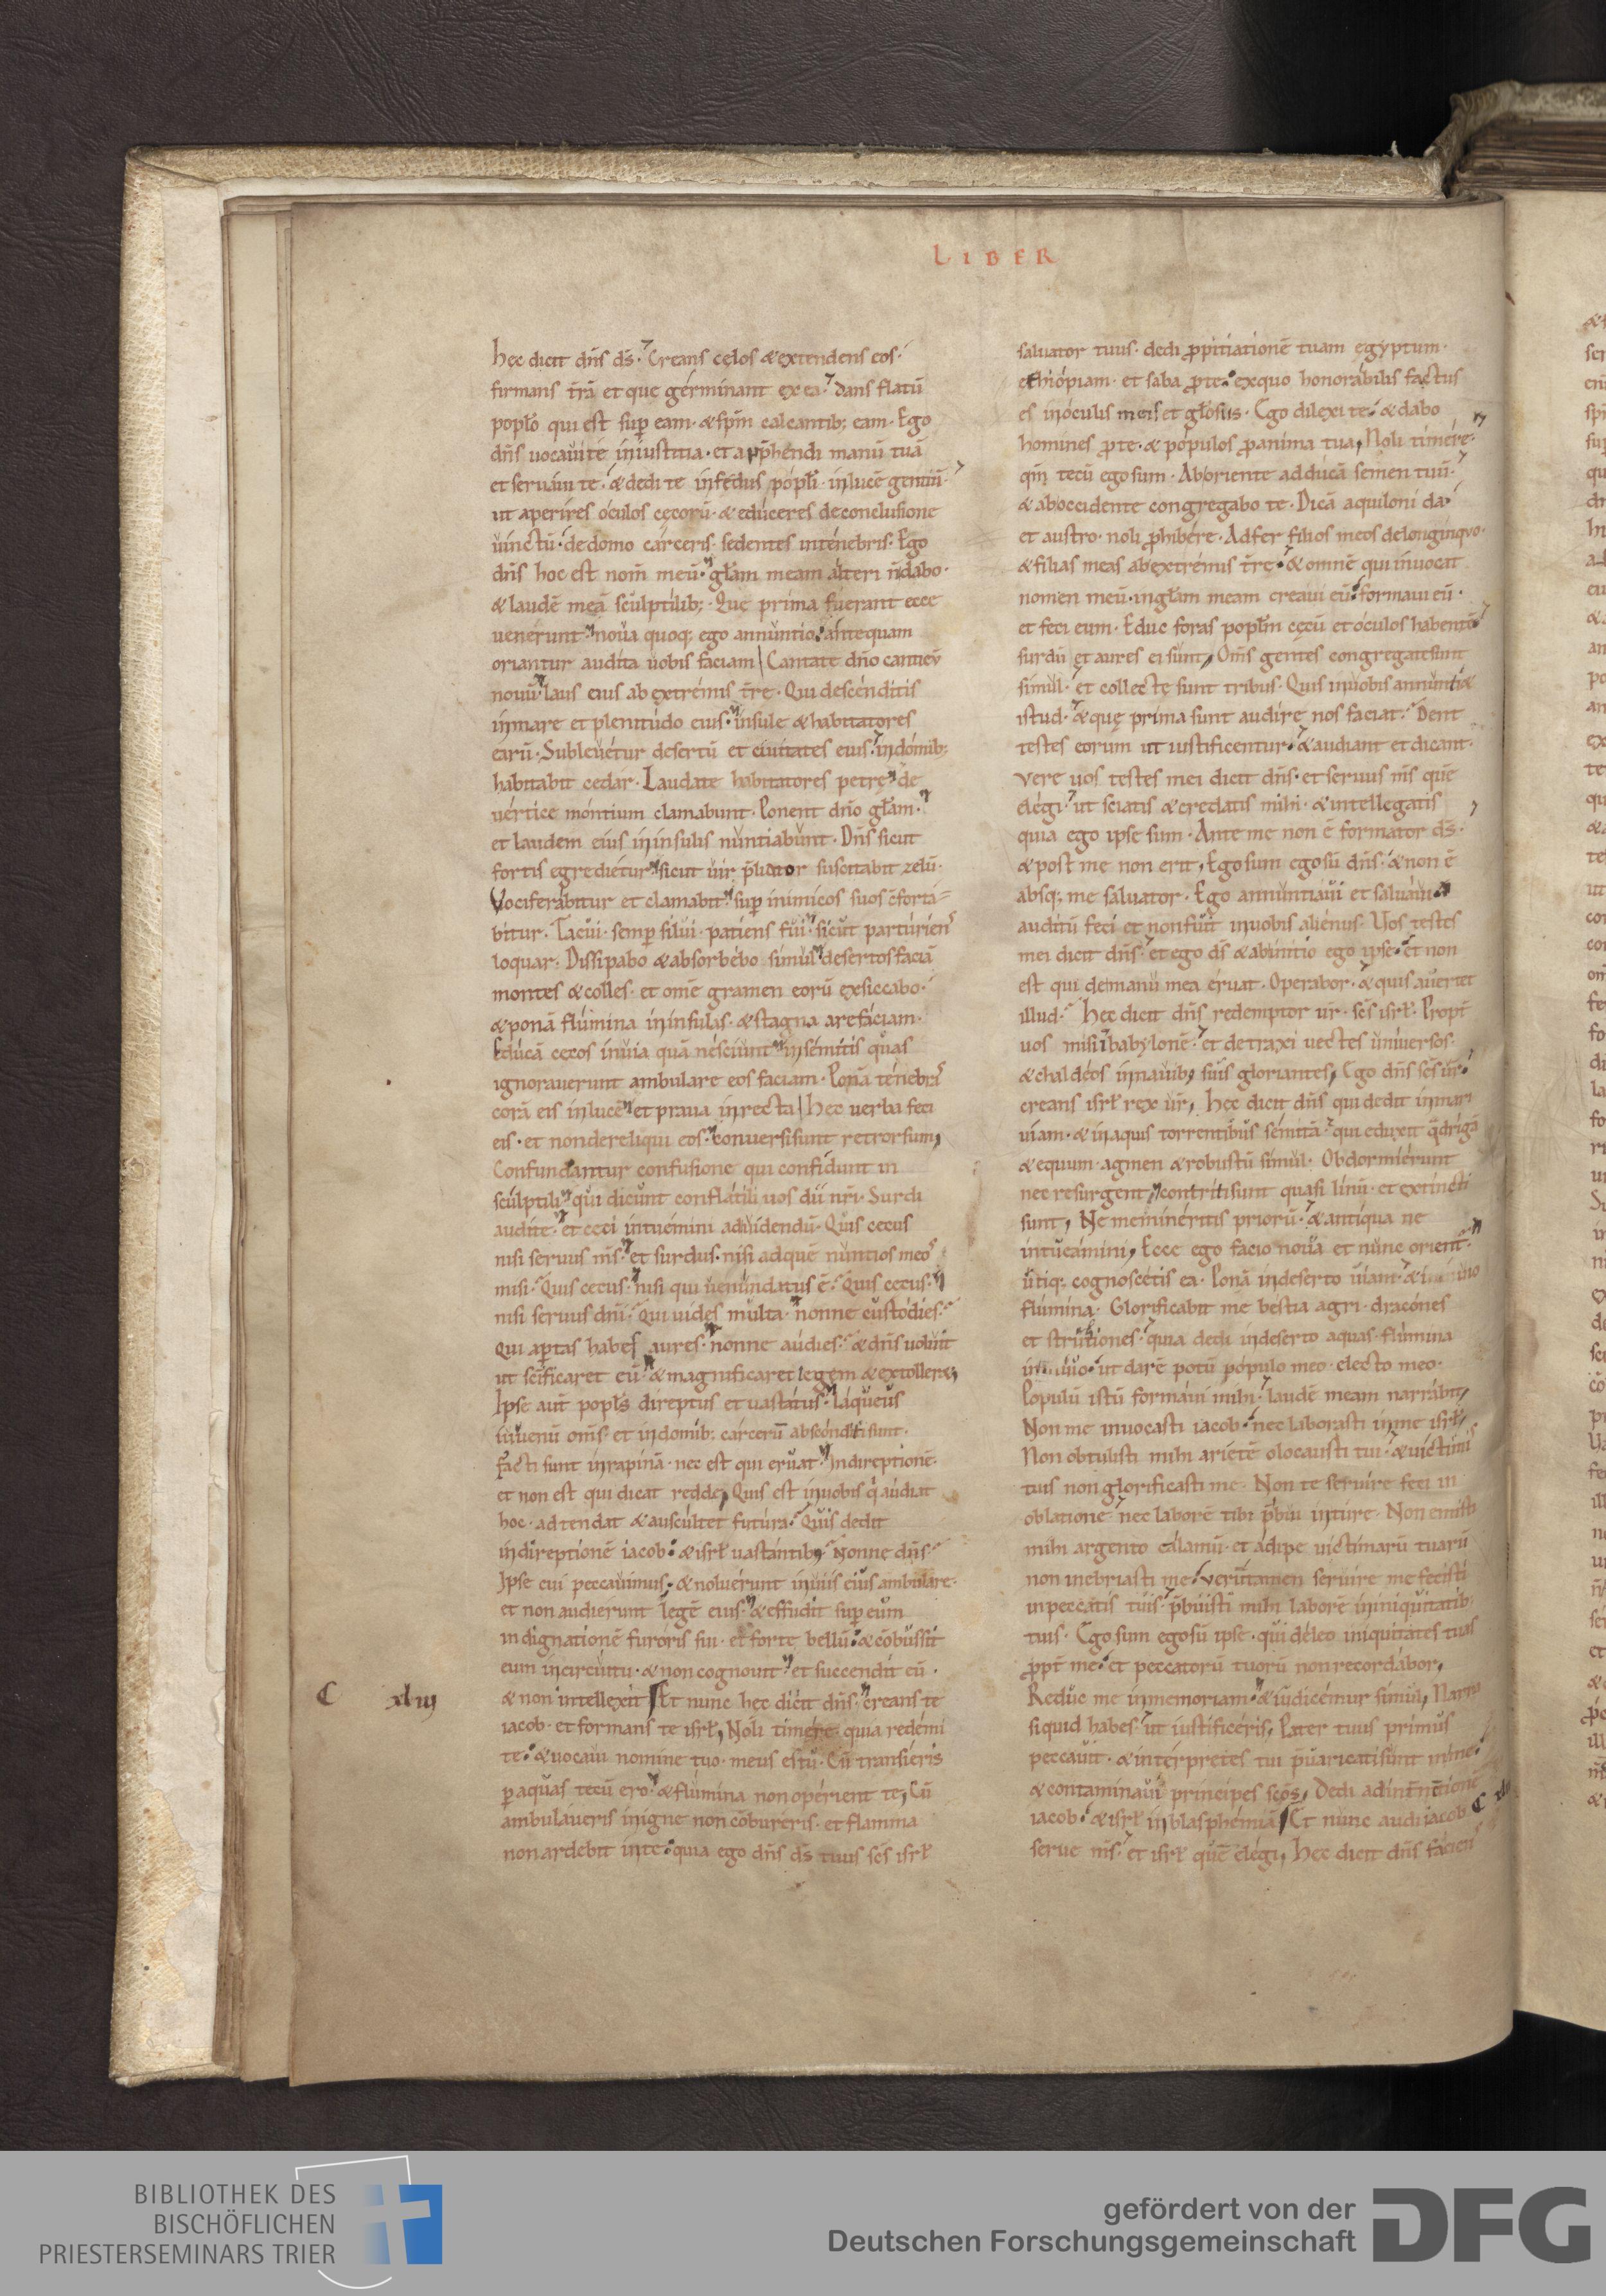 LIBER
hec dicit dñs ds̄. Creans cęlos & extendens eos.
firmans t̄rā et que germinant ex ea. dans flatū
poplo qui est sup eam. & sp̄m calcantib; eam. Ego
dñs uocaui te in iustitia. et app̄hendi manū tuā
et seruaui te. & dedi te in fędus popli. in lucē gentiū.
ut aperires oculos cęcorū. & educeres de conclusione
uinctū. de domo carceris. sedentes in tenebris. Ego
dñs hoc est nom̄ meū. gl̄am meam alteri n̄ dabo.
& laudē meā sculptilib;. Que prima fuerant ecce
uenerunt. noua quoq; ego annuntio. antequam
oriantur audita uobis faciam Cantate dño canticū
nouū. laus eius ab extremis t̄re. Qui descenditis
in mare et plenitudo eius. insule & habitatores
earū. Subleuetur desertū et ciuitates eius. in domib;
habitabit cedar. Laudate habitatores petrę. de
uertice montium clamabunt. Ponent dño gl̄am.
et laudem eius in insulis nuntiabunt. Dñs sicut
fortis egredietur. sicut uir p̄liator suscitabit zelū.
Vociferabitur et clamabit. sup inimicos suos cforta-
bitur. Tacui. semp silui. patiens fui. sicut parturiens
loquar. Dissipabo & absorbebo simul. desertos faciā
montes & colles. et om̄e gramen eorū exsiccabo.
& ponā flumina in insulas. & stagna arefaciam.
Educā cęcos in uia quā nesciunt. in semitis quas
ignorauerunt ambulare eos faciam. Ponā tenebras
corā eis in lucē. et praua in recta hec uerba feci
eis. et non dereliqui eos. conuersi sunt retrorsum,
Confundantur confusione qui confidunt in
sculptili. qui dicunt conflatili uos dii nr̄i. Surdi
audite. et ceci intuemini ad uidendū. Quis cecus
nisi seruus m̄s. et surdus. nisi ad quē nuntios meos
misi. Quis cecus. nisi qui uenundatus ē. Quis cecus.
nisi seruus dñi. Qui uides multa. nonne custodies.
qui aptas habes aures. nonne audies. & dñs uoluit
ut sc̄ificaret eū. & magnificaret legem & extolleret,
Ipse aut̄ popls direptus et uastatus. laqueus
iuuenū om̄s. et in domib; carcerū absconditi sunt.
facti sunt in rapinā. nec est qui eruat. In direptionē.
et non est qui dicat redde, Quis est in uobis q̄ audiat
hoc. adtendat & auscultet futura. Quis dedit
in direptionē iacob. & isrl̄ uastantib; Nonne dñs.
Ipse cui peccauimus. & noluerunt in uiis eius ambulare.
et non audierunt legē eius. & effudit sup eum
indignationē furoris sui. et forte bellū. & cōbussit
eum in circuitu. & non cognouit. et succendit eū.
C xliij & non intellexit Et nunc hec dicit dñs. creans te
iacob. et formans te isrl̄, Noli timere. quia redemi
te. & uocaui nomine tuo. meus es tu. Cū transieris
p aquas tecū ero. & flumina non operient te, Cū
ambulaueris in igne non cōbureris. et flamma
non ardebit in te. quia ego dñs ds̄ tuus sc̄s isrl̄
saluator tuus. dedi ppitiationē tuam ęgyptum.
ethiopiam. et saba p te. ex quo honorabilis factus
es in oculis meis et gl̄osus. Ego dilexi te. & dabo
homines p te. & populos p anima tua, Noli timere.
qm̄ tecū ego sum. Ab oriente adducā semen tuū.
& ab occidente congregabo te. Dicā aquiloni da.
et austro. noli phibere. Adfer filios meos de longinquo.
& filias meas ab extremis t̄re. & omnē qui inuocat
nomen meū. in gl̄am meam creaui eū. formaui eū.
et feci eum. Educ foras popl̄m cęcū et oculos habentē.
surdū et aures ei sunt, Om̄s gentes congregate sunt
simul. et collectę sunt tribus. Quis in uobis annuntiet
istud. & quę prima sunt audire nos faciat. Dent
testes eorum ut iustificentur. & audiant et dicant.
vere uos testes mei dicit dñs. et seruus m̄s quē
elegi. ut sciatis & credatis mihi. & intellegatis
quia ego ipse sum. Ante me non ē formator ds̄.
& post me non erit, Ego sum ego sū dñs. & non ē
absq; me saluator. Ego annuntiaui et saluaui.
auditū feci et non fuit in uobis alienus. Uos testes
mei dicit dñs. et ego ds̄ & ab initio ego ipse. et non
est qui de manu mea eruat. Operabor. & quis auertet
illud. Hec dicit dñs redemptor ur̄. sc̄s isrl̄. Propt̄
uos misi babylonē. et detraxi uectes uniuersos.
& chaldeos in nauib; suis gloriantes, Ego dñs sc̄s ur̄.
creans isrl̄ rex ur̄, hec dicit dñs qui dedit in mari
uiam. & in aquis torrentibus semitā. qui eduxit q̄drigā
& equum. agmen & robustū simul. Obdormierunt
nec resurgent, contriti sunt quasi linū. et extincti
sunt, Ne memineritis priorū. & antiqua ne
intueamini, Ecce ego facio noua et nunc orient̄.
utiq; cognoscetis ea. Ponā in deserto uiam. & in inuio
flumina. Glorificabit me bestia agri. dracones
et strutiones. quia dedi in deserto aquas. flumina
in inuio. ut darē potū populo meo. electo meo.
Populū istū formaui mihi. laudē meam narrabit,
Non me inuocasti iacob. nec laborasti in me isrl̄,
Non obtulisti mihi arietē olocausti tui. & uictimis
tuis non glorificasti me. Non te seruire feci in
oblatione. nec laborē tibi p̄bui in ture. Non emisti
mihi argento calamū. et adipe uictimarū tuarū
non inebriasti me. verūtamen seruire me fecisti
in peccatis tuis. p̄buisti mihi laborē in iniquitatib;
tuis. Ego sum ego sū ipse. qui deleo iniquitates tuas
ppt̄ me. et peccatorū tuorū non recordabor,
Reduc me in memoriam. & iudicemur simul, Narra
si quid habes. ut iustificeris, Pater tuus primus
peccauit. & interpretes tui p̄uaricati sunt in me.
& contaminaui principes sc̄os, Dedi ad int̄nētionē
iacob. & isrl̄ in blasphemiā Et nunc audi iacob C
serue m̄s. et isrl̄ quē elegi, hec dicit dñs faciens
BIBLIOTHEK DES
BISCHÖFLICHEN
PRIESTERSEMINARS TRIER
gefördert von der
Deutschen Forschungsgemeinschaft
DFG